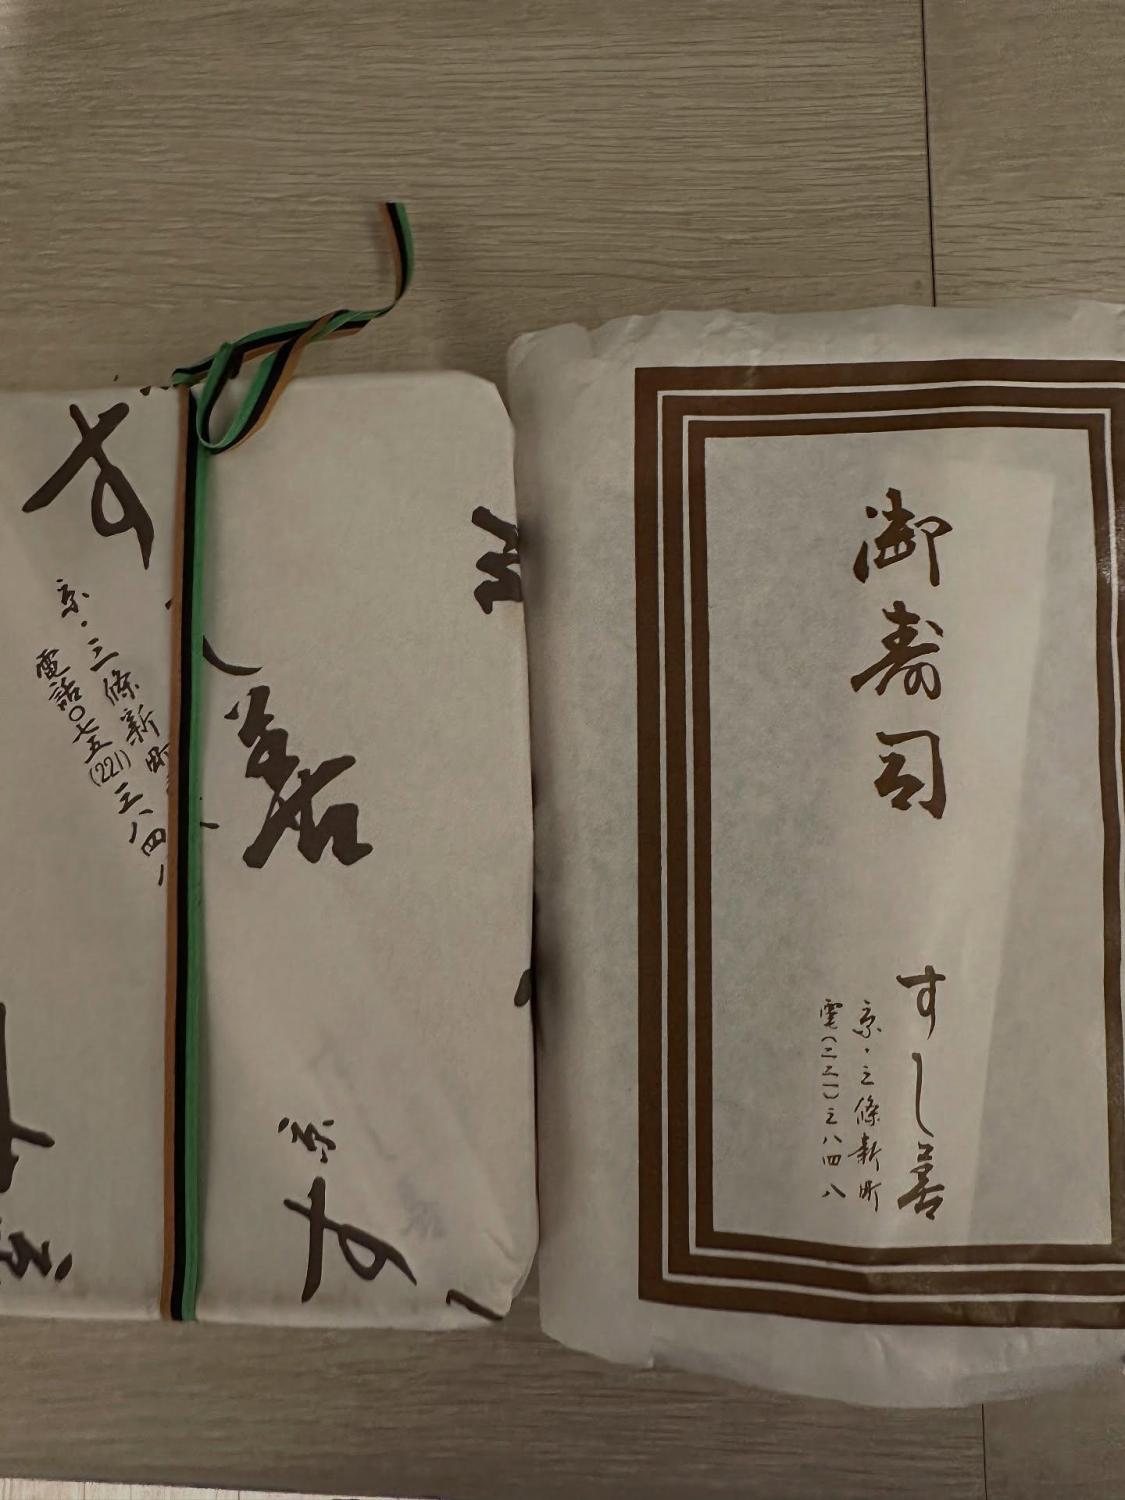 す
善
京・三條新町
電話〇七五(221)三八四八
京
す
御寿司
すし善
京・三條新町
電(二二一)三八四八